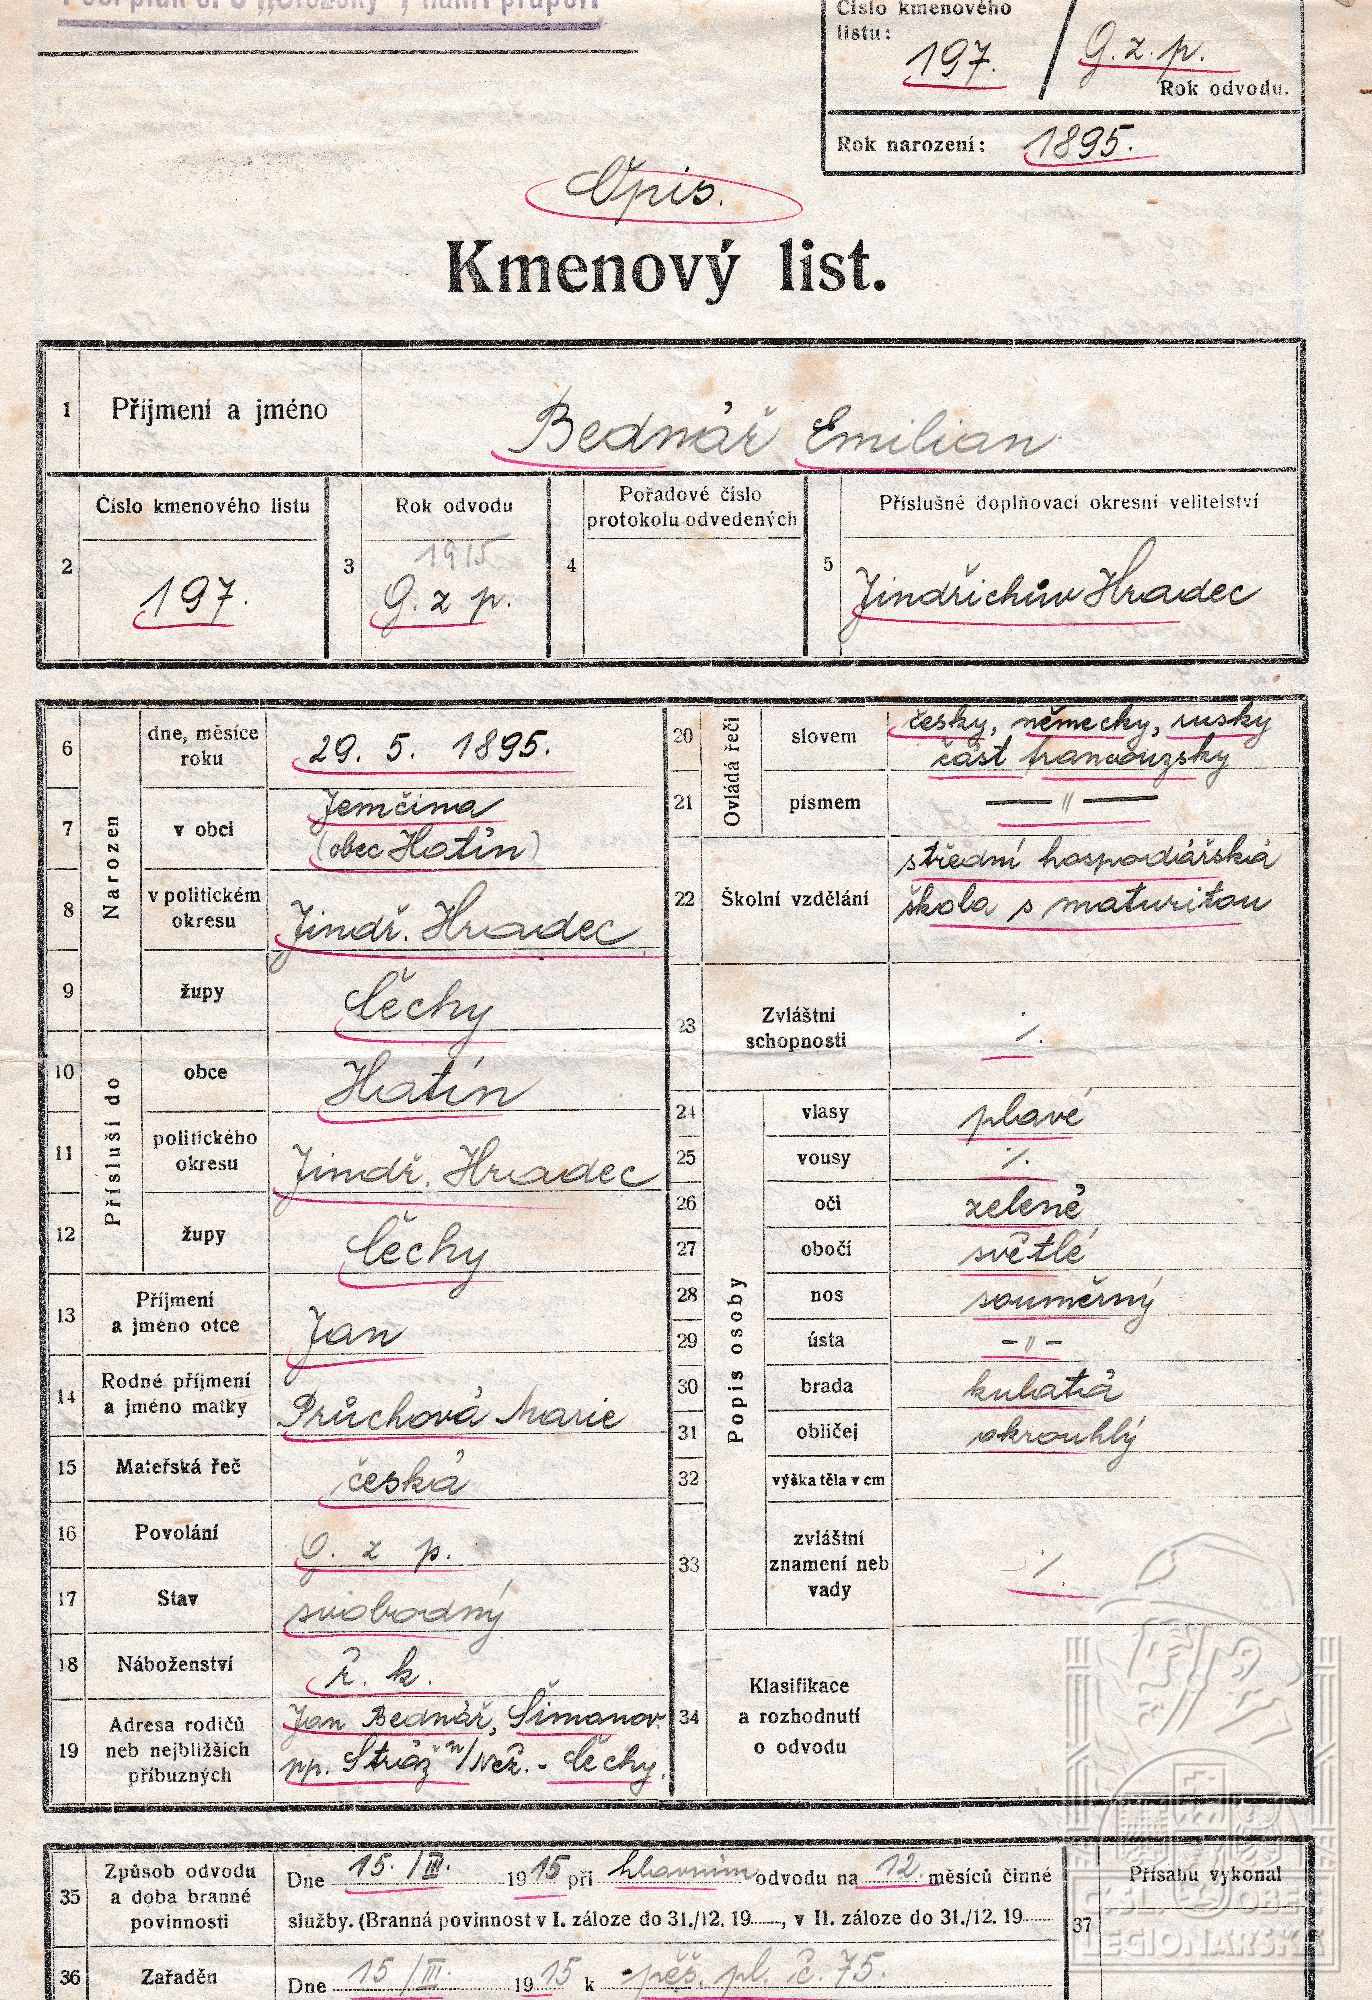 Číslo kmenového
listu:
197. / G. z. p.
Rok odvodu.
Rok narození: 1895.
Opis.
Kmenový list.
1 Příjmení a jméno Bednář Emilian
2 Číslo kmenového listu 197.
3 Rok odvodu 1915 G. z p.
4 Pořadové číslo
protokolu odvedených
5 Příslušné doplňovací okresní velitelství Jindřichův Hradec
Narozen
6 dne, měsíce
roku 29. 5. 1895.
7 v obci Jemčina
(obec Hatín)
8 v politickém
okresu Jindř. Hradec
9 župy Čechy
Přísluší do
10 obce Hatín
11 politického
okresu Jindř. Hradec
12 župy Čechy
13 Příjmení
a jméno otce Jan
14 Rodné příjmení
a jméno matky Průchová Marie
15 Mateřská řeč česká
16 Povolání G. z p.
17 Stav svobodný
18 Náboženství ř. k.
19 Adresa rodičů
neb nejbližších
příbuzných
Jan Bednář, Šimanov
pp. Stráž n/Než. - Čechy.
Ovládá řeči
20 slovem česky, německy, rusky
část francouzsky
21 písmem — " —
22 Školní vzdělání střední hospodářská
škola s maturitou
23 Zvláštní
schopnosti ·/.
Popis osoby
24 vlasy plavé
25 vousy ·/.
26 oči zelené
27 obočí světlé
28 nos souměrný
29 ústa – " –
30 brada kulatá
31 obličej okrouhlý
32 výška těla v cm
33 zvláštní
znamení neb
vady ·/.
34 Klasifikace
a rozhodnutí
o odvodu
35 Způsob odvodu
a doba branné
povinnosti
Dne 15. /III. 1915 při hlavním odvodu na 12 měsíců činné
služby. (Branná povinnost v I. záloze do 31./12. 19....., v II. záloze do 31./12. 19.....
36 Zařaděn Dne 15 /III. 1915 k pěš. pl. č. 75.
37 Přísahu vykonal
ČSL. OBEC
LEGIONÁŘSKÁ